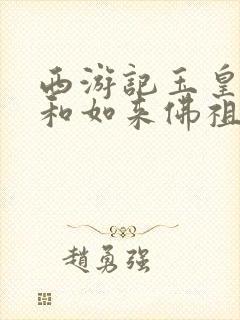 西游記玉皇
和如来佛祖
趙勇强